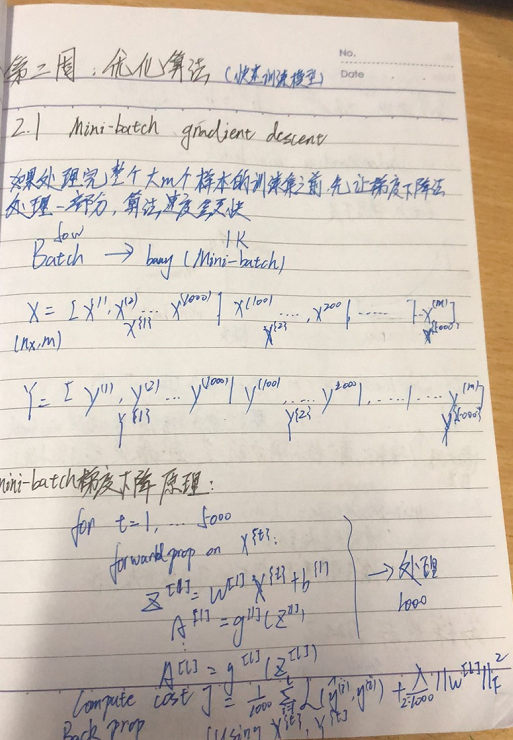 No.
Date
第二周:优化算法 (快速训练模型)
2.1 Mini-batch gradient descent
如果处理完整个大m个样本的训练集之前,先让梯度下降法
处理一部分,算法速度会更快
1K
Batch → (Mini-batch)
X = [ X^(1), X^(2) ... X^(1000) | X^(100) ...., X^2000 | ...... | .. X^(m) ]
(nx,m) X^{1} X^{2} X^{5000}
Y = [ y^(1), y^(2) ... y^(1000) | y^(100) ... y^2000 | , .... | .... y^(m) ]
Y^{1} Y^{2} Y^{5000}
mini-batch梯度下降原理:
for t=1, ... 5000
forward prop on X^{t}:
Z^[1] = W^[1] X^{t} + b^[1]
→ 处理
A^[1] = g^[1](Z^[1])
1000
⋮
A^[L] = g^[L](Z^[L])
Compute cost J = 1/1000 Σ L(ŷ^(i), y^(i)) + λ/2·1000 ||W^[L]||²_F
Back prop (Using X^{t}, Y^{t}